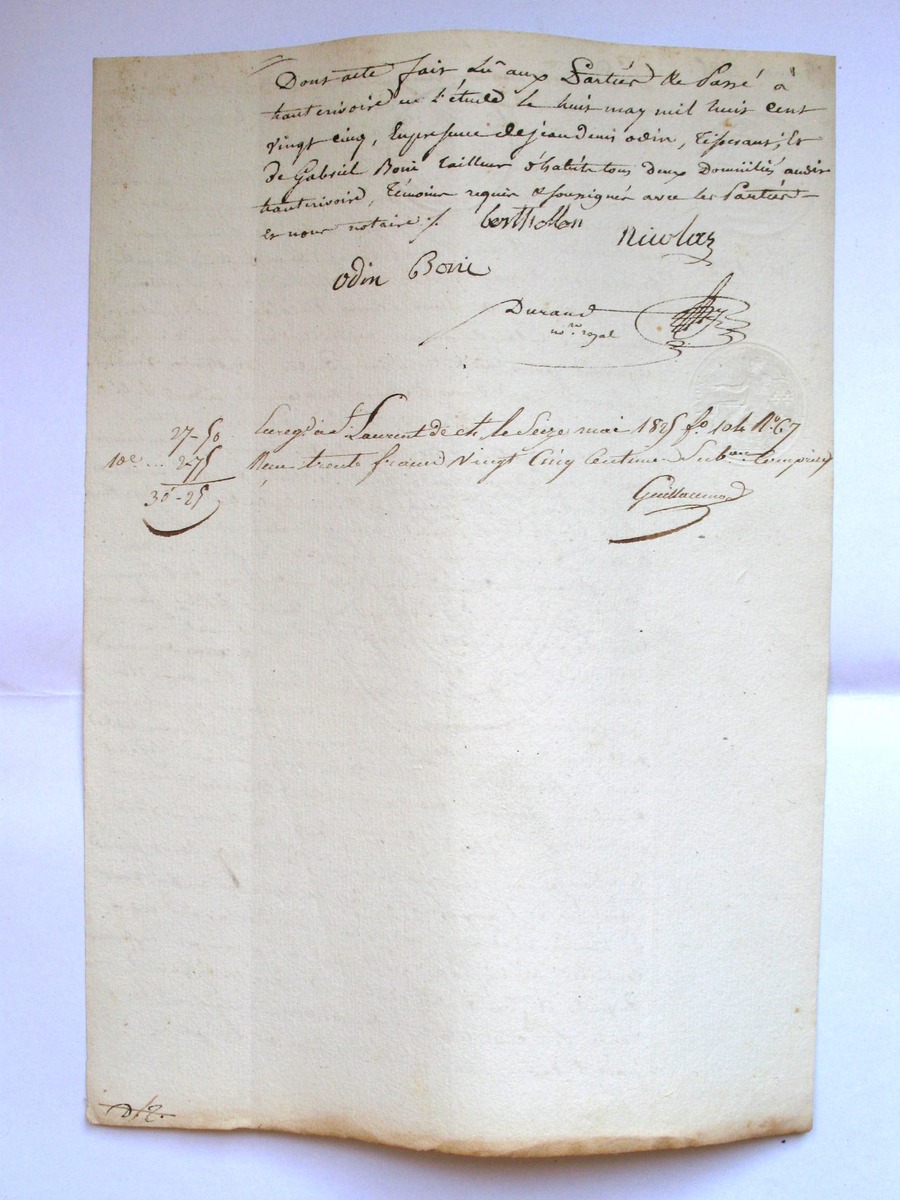 Dont acte fait Lû aux Partiès et Passé à
hauterivoire en l'étude le huit may mil huit cent
vingt cinq, En presence de jean denis odin, Tisserant, Et
de Gabriel Boni tailleur d'habits tous deux Domiciliés audit
hauterivoire, Témoins requis et soussignés avec les Partiès
et nous notaire /.
berthollon
Nicolas
odin Boni
Durand
no.re royal
27-50
10e... 2-75
30-25
Enreg.é à S.t Laurent de ch. le Seize mai 1825 f.o 104 N.o 67
Reçu trente francs Vingt Cinq Centimes Sub.on Comprise
Guillaumod